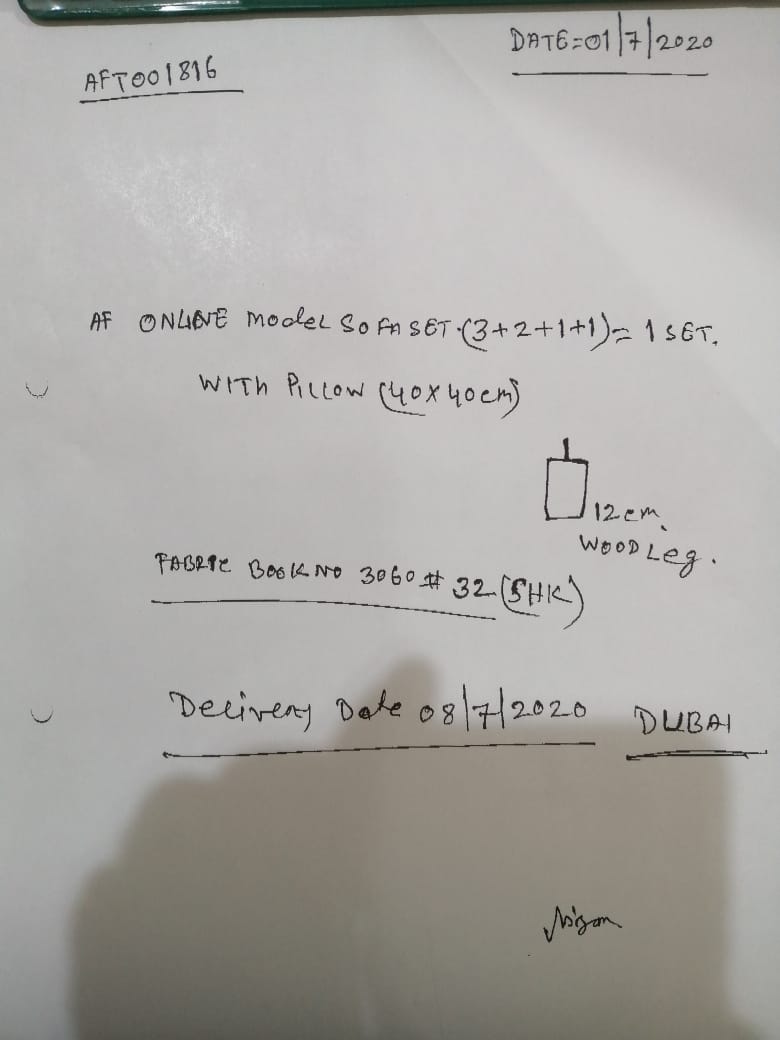 AFT001816
DATE=01/7/2020
AF ONLINE Model SOFA SET (3+2+1+1)= 1 SET.
WITH PILLOW (40x40cm)
12cm.
WOOD Leg.
FABRIC BOOK NO 3060 # 32 (SHK)
Delivery Date 08/7/2020 DUBAI